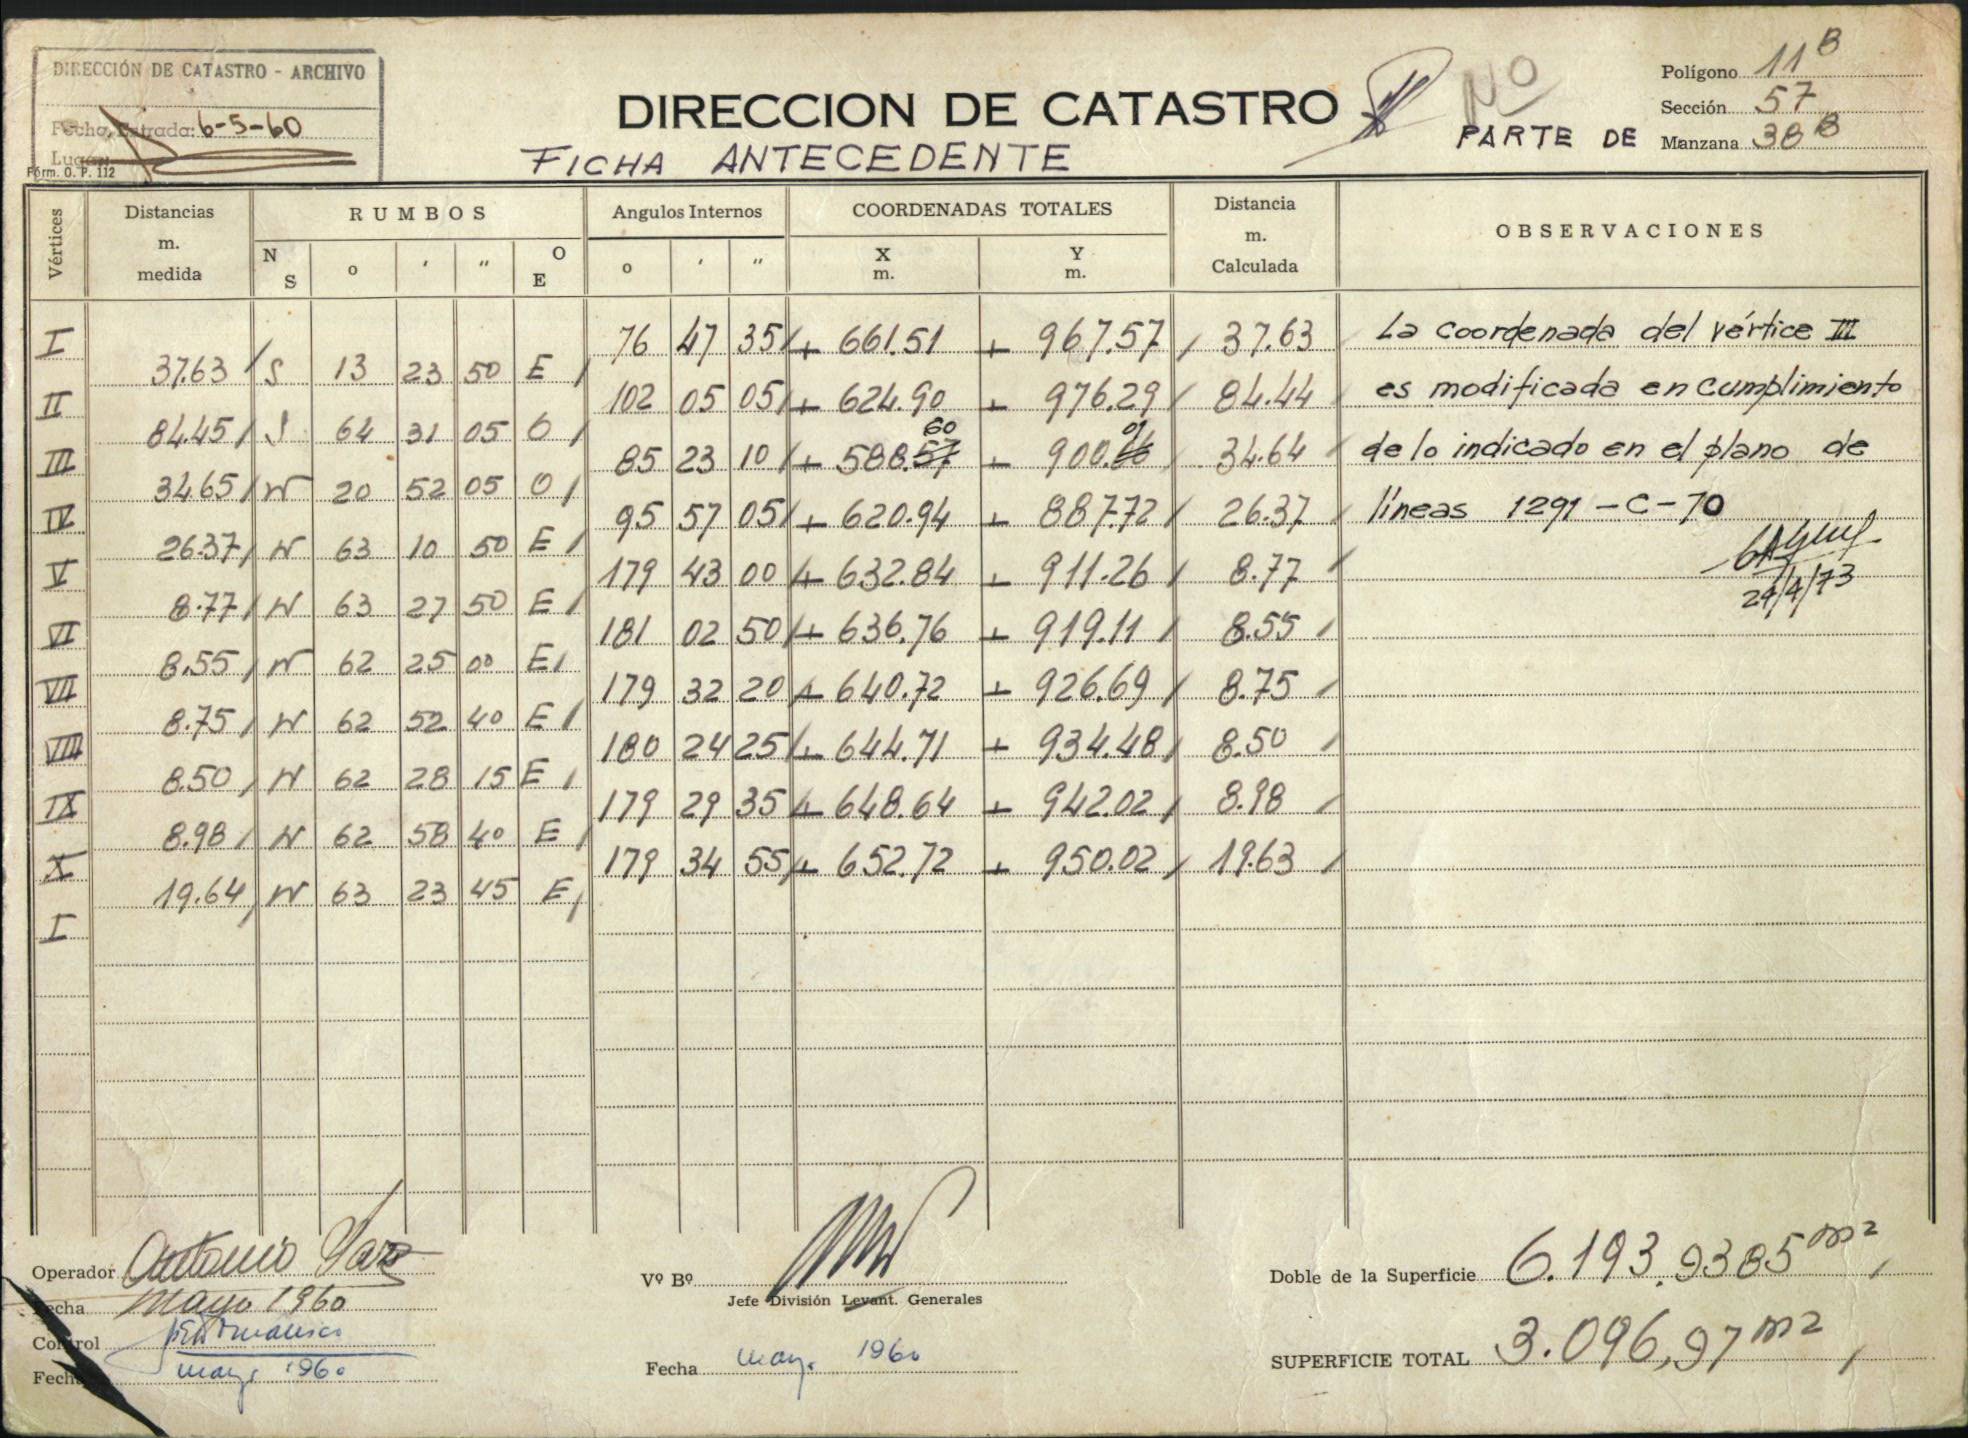 DIRECCIÓN DE CATASTRO - ARCHIVO
Fecha Entrada: 6-5-60
Lugar
Fórm. O. P. 112
DIRECCION DE CATASTRO
FICHA ANTECEDENTE
NO
PARTE DE
Polígono 11 B
Sección 57
Manzana 38 B
Vértices Distancias m. medida RUMBOS Angulos Internos COORDENADAS TOTALES Distancia m. Calculada OBSERVACIONES
N S o ' " O E o ' " X m. Y m.
I 76 47 35 + 661.51 + 967.57 37.63 La coordenada del vértice III
37.63 S 13 23 50 E
II 102 05 05 + 624.90 + 976.29 84.44 es modificada en cumplimiento
84.45 S 64 31 05 O
60 01
III 85 23 10 + 588.57 + 900. 34.64 de lo indicado en el plano de
34.65 N 20 52 05 O
IV 95 57 05 + 620.94 + 887.72 26.37 líneas 1291-C-70
26.37 N 63 10 50 E
V 179 43 00 + 632.84 + 911.26 8.77
24/4/73
8.77 N 63 27 50 E
VI 181 02 50 + 636.76 + 919.11 8.55
8.55 N 62 25 00 E
VII 179 32 20 + 640.72 + 926.69 8.75
8.75 N 62 52 40 E
VIII 180 24 25 + 644.71 + 934.48 8.50
8.50 N 62 28 15 E
IX 179 29 35 + 648.64 + 942.02 8.98
8.98 N 62 58 40 E
X 179 34 55 + 652.72 + 950.02 19.63
19.64 N 63 23 45 E
I
Operador Antonio
Fecha Mayo 1960
Control
Fecha mayo 1960
Vº Bº
Jefe División Levant. Generales
Fecha mayo 1960
Doble de la Superficie 6.193.9385 m2
SUPERFICIE TOTAL 3.096,97 m2